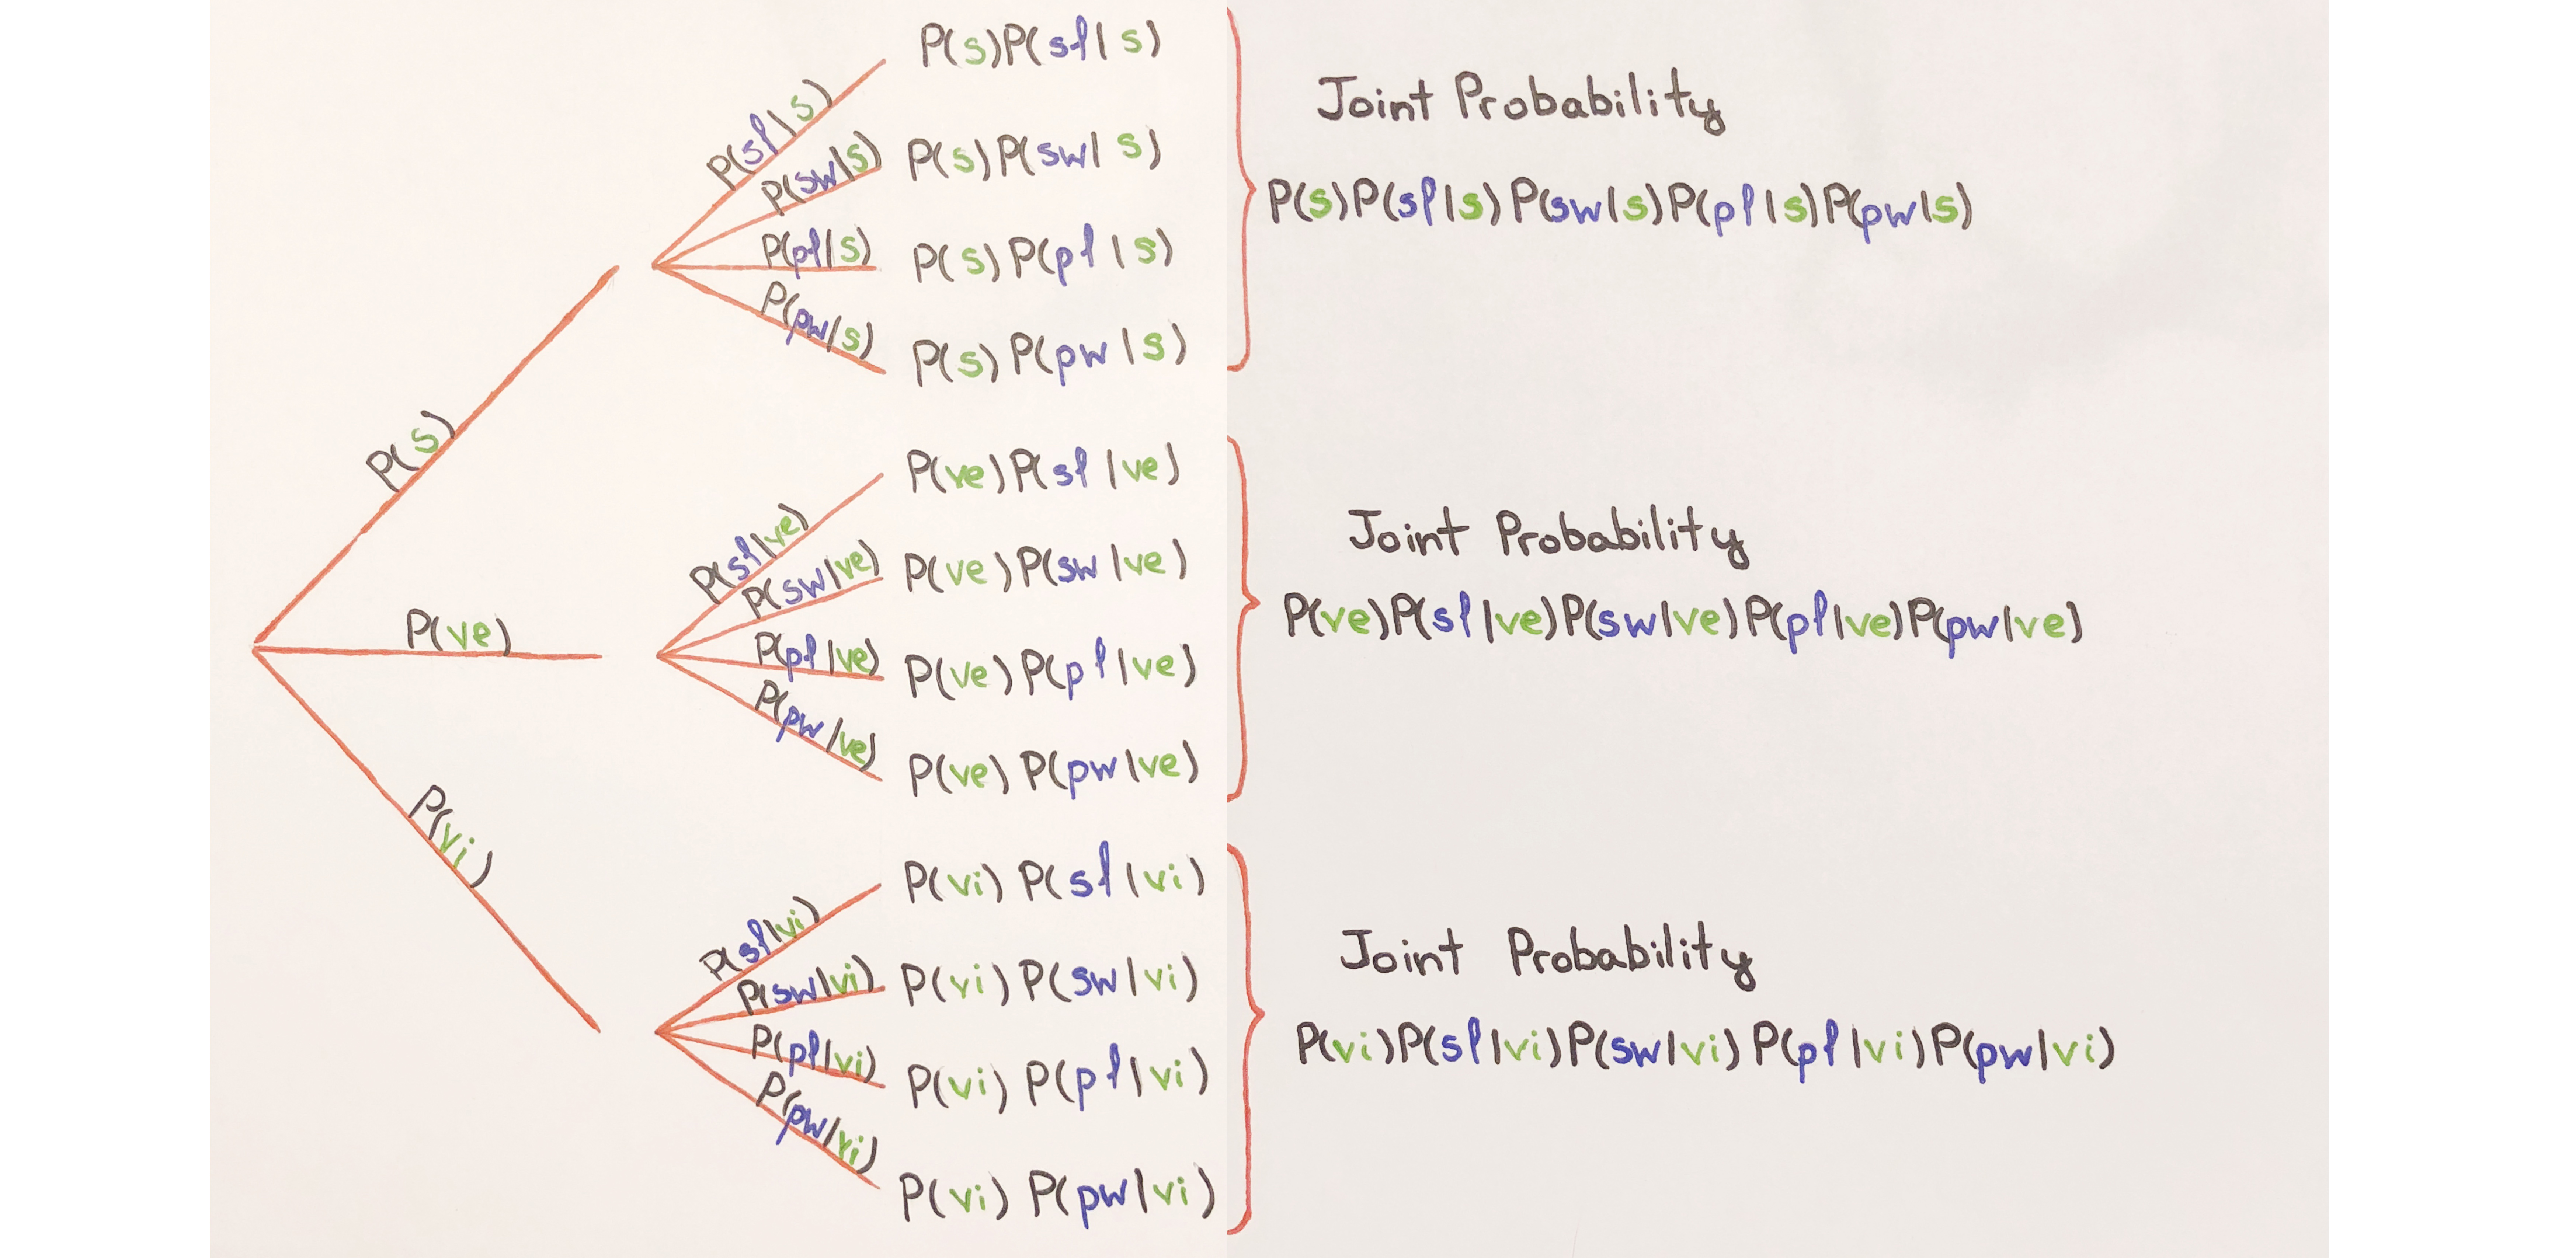 P(s)
P(ve)
P(vi)
P(sl|s)
P(sw|s)
P(pl|s)
P(pw|s)
P(s)P(sl|s)
P(s)P(sw|s)
P(s)P(pl|s)
P(s)P(pw|s)
Joint Probability
P(s)P(sl|s)P(sw|s)P(pl|s)P(pw|s)
P(sl|ve)
P(sw|ve)
P(pl|ve)
P(pw|ve)
P(ve)P(sl|ve)
P(ve)P(sw|ve)
P(ve)P(pl|ve)
P(ve)P(pw|ve)
Joint Probability
P(ve)P(sl|ve)P(sw|ve)P(pl|ve)P(pw|ve)
P(sl|vi)
P(sw|vi)
P(pl|vi)
P(pw|vi)
P(vi)P(sl|vi)
P(vi)P(sw|vi)
P(vi)P(pl|vi)
P(vi)P(pw|vi)
Joint Probability
P(vi)P(sl|vi)P(sw|vi)P(pl|vi)P(pw|vi)